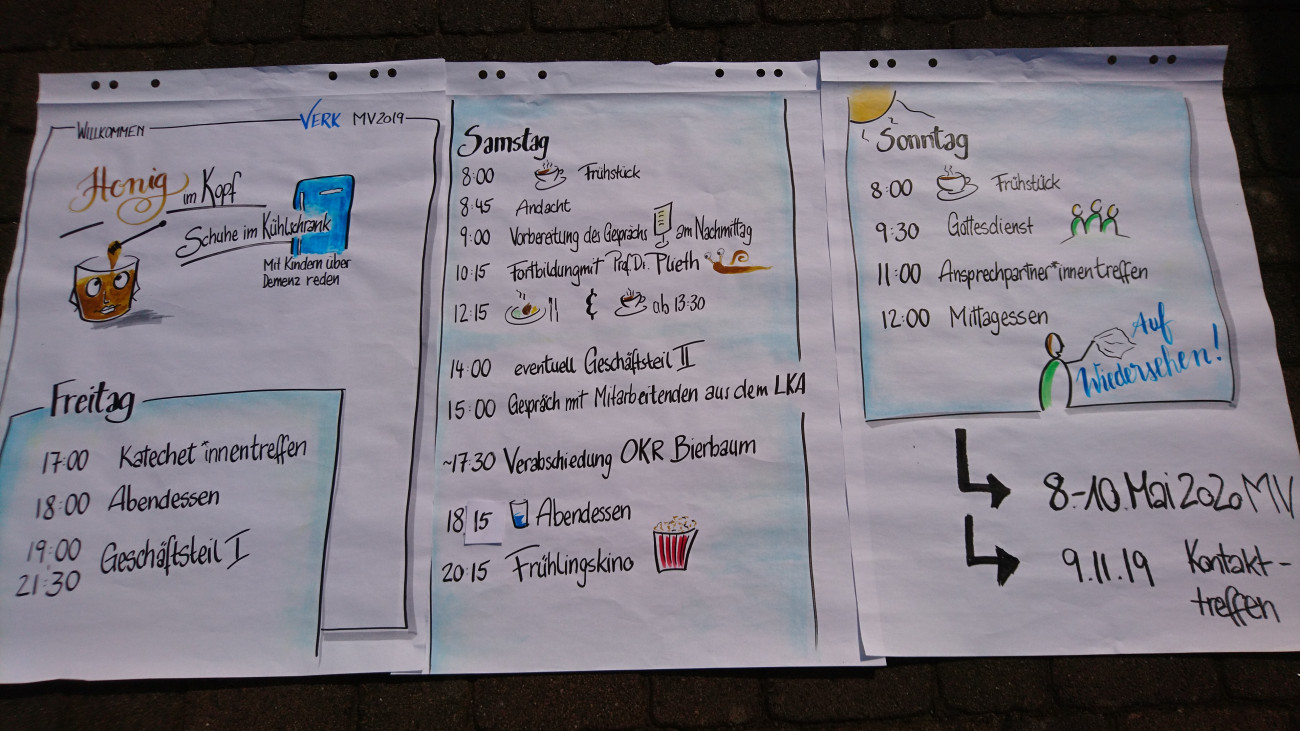 WILLKOMMEN
VERK MV2019
Honig im Kopf
Schuhe im Kühlschrank
Mit Kindern über
Demenz reden
Freitag
17:00 Katechet*innentreffen
18:00 Abendessen
19:00
21:30 Geschäftsteil I
Samstag
8:00 Frühstück
8:45 Andacht
9:00 Vorbereitung des Gesprächs am Nachmittag
10:15 Fortbildung mit Prof. Dr. Plieth
12:15 & ab 13:30
14:00 eventuell Geschäftsteil II
15:00 Gespräch mit Mitarbeitenden aus dem LKA
~17:30 Verabschiedung OKR Bierbaum
18 15 Abendessen
20:15 Frühlingskino
Sonntag
8:00 Frühstück
9:30 Gottesdienst
11:00 Ansprechpartner*innentreffen
12:00 Mittagessen
Auf
Wiedersehen!
8.-10. Mai 2020 MV
9.11.19 Kontakt-
treffen